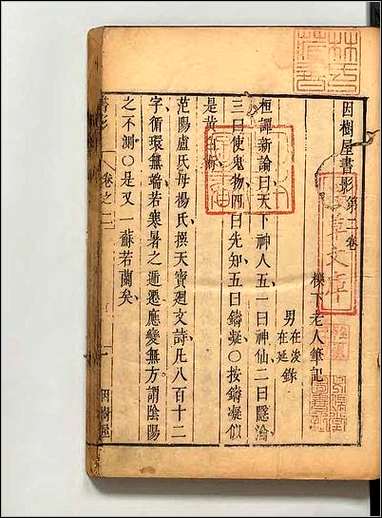 因樹屋書影第二卷
櫟下老人筆記
男在浚
在延錄
桓譚新論曰天下神人五一曰神仙二曰隱淪
三曰使鬼物四曰先知五曰鑄凝○按鑄凝似
是黃白術
范陽盧氏母楊氏撰天寶迴文詩凡八百十二
字循環無端若寒暑之遞遷應變無方謂陰陽
之不測○是又一蘇若蘭矣
書影
卷之二
一
因樹屋